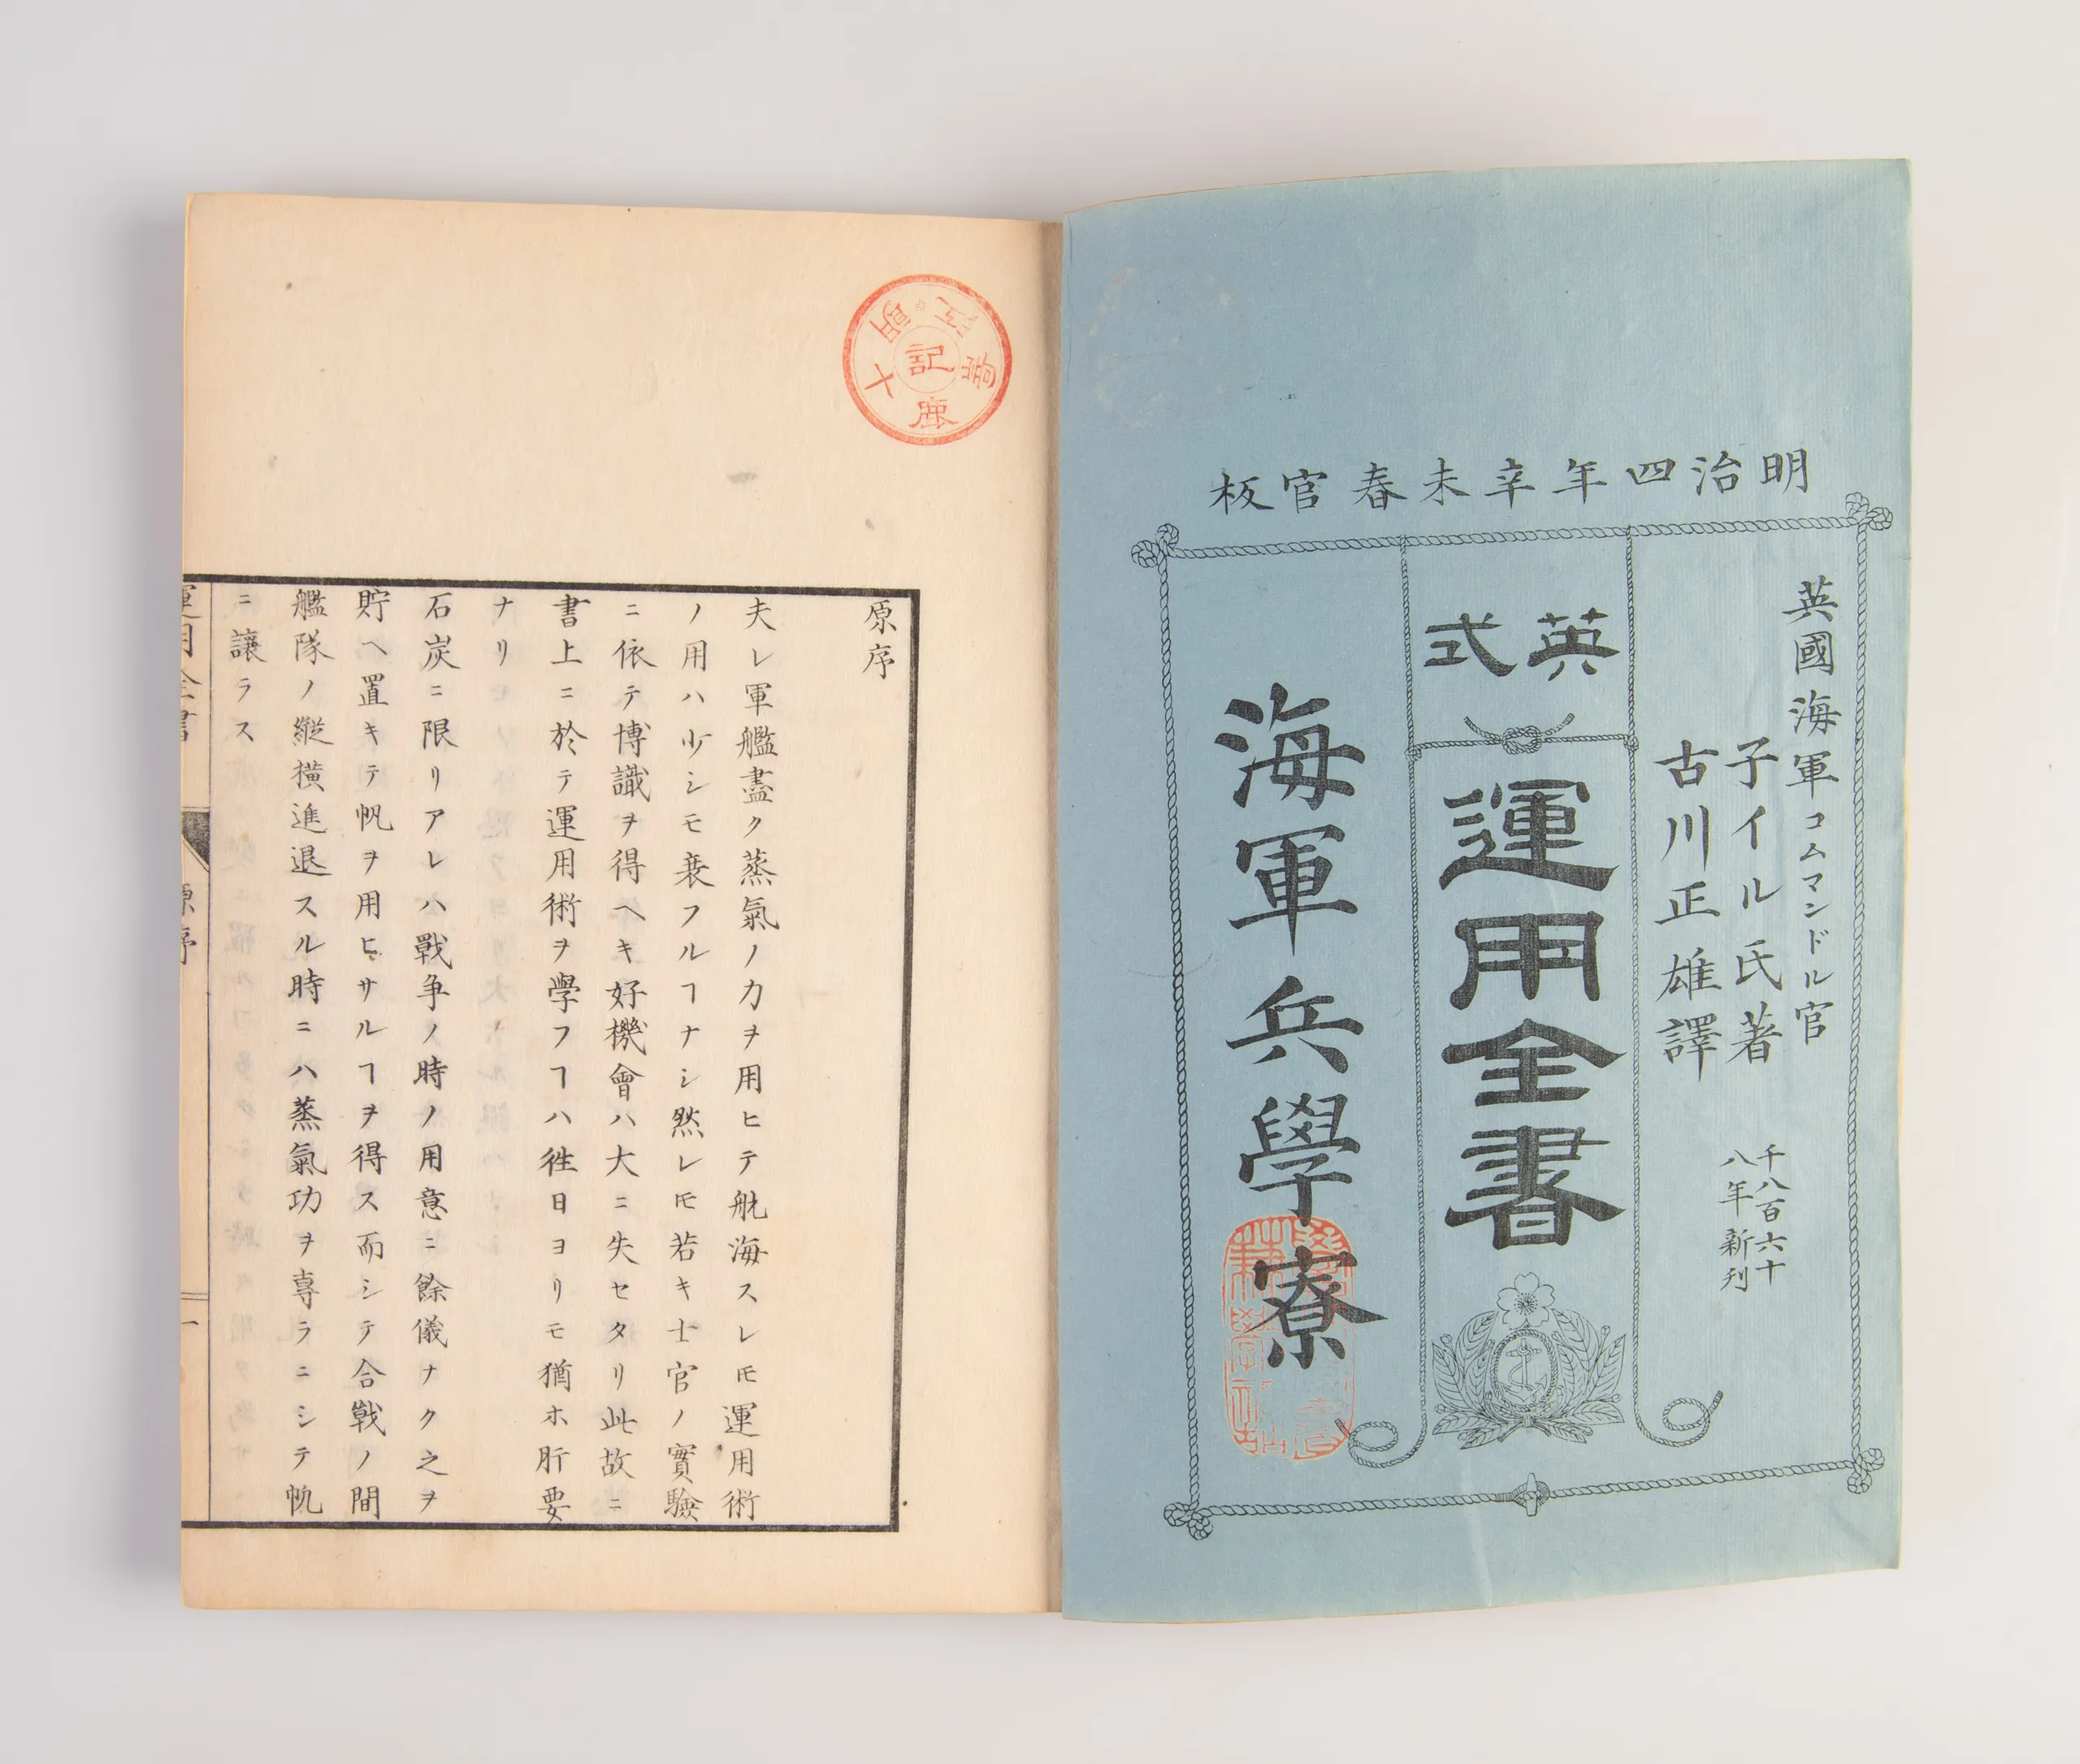 明治四年辛未春官板
英國海軍コムマンドル官
子イル氏著
古川正雄譯
千八百六十
八年新刊
英式
運用全書
海軍兵學寮
原序
夫レ軍艦盡ク蒸氣ノ力ヲ用ヒテ航海スレ𪜈運用術
ノ用ハ少シモ衰フルヿナシ然レ𪜈若キ士官ノ實驗
ニ依テ博識ヲ得ヘキ好機會ハ大ニ失セタリ此故ニ
書上ニ於テ運用術ヲ學フヿハ徃日ヨリモ猶ホ肝要
ナリ
石炭ニ限リアレハ戰争ノ時ノ用意ニ餘儀ナク之ヲ
貯ヘ置キテ帆ヲ用ヒサルヿヲ得ス而シテ合戰ノ間
艦隊ノ縦横進退スル時ニハ蒸氣功ヲ專ラニシテ帆
ニ讓ラス
運用全書
原序
一
記